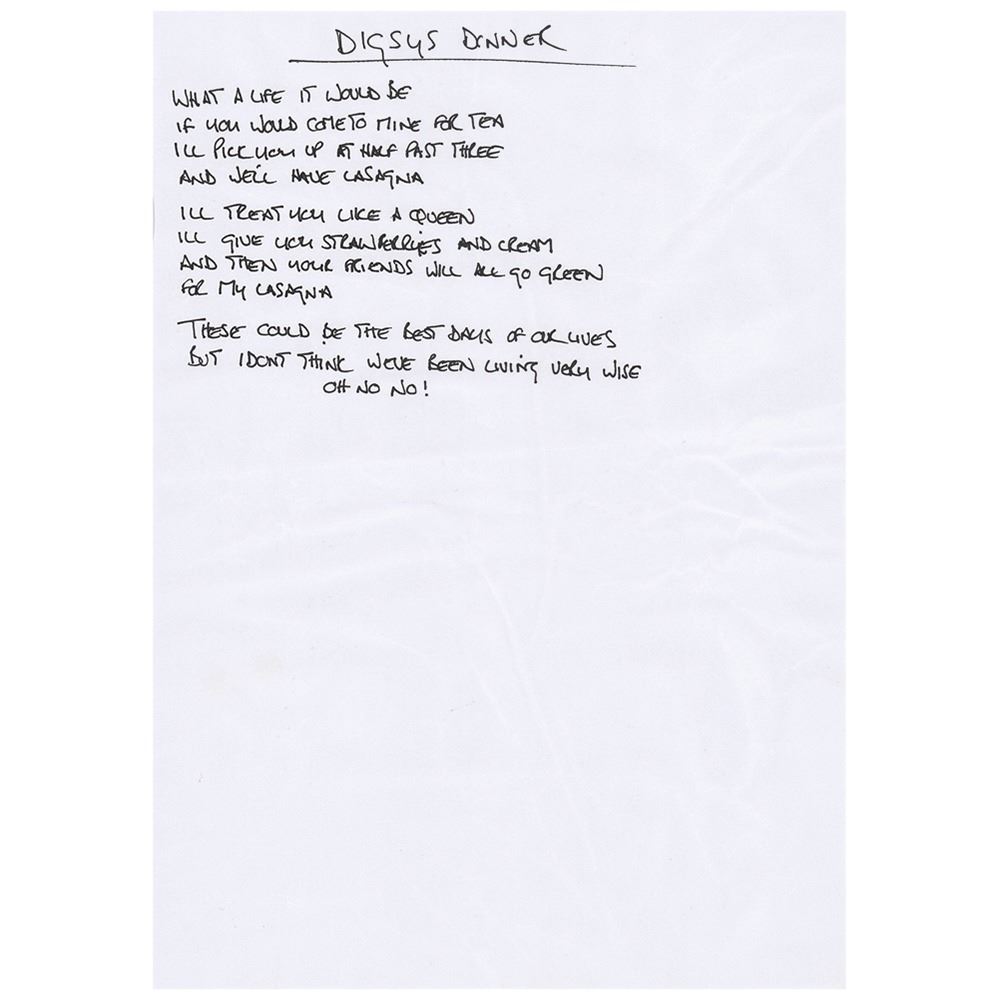 DIGSYS DINNER
WHAT A LIFE IT WOULD BE
IF YOU WOULD COME TO MINE FOR TEA
ILL PICK YOU UP AT HALF PAST THREE
AND WE'LL HAVE LASAGNA
ILL TREAT YOU LIKE A QUEEN
ILL GIVE YOU STRAWBERRIES AND CREAM
AND THEN YOUR FRIENDS WILL ALL GO GREEN
FOR MY LASAGNA
THESE COULD BE THE BEST DAYS OF OUR LIVES
BUT I DONT THINK WEVE BEEN LIVING VERY WISE
OH NO NO!